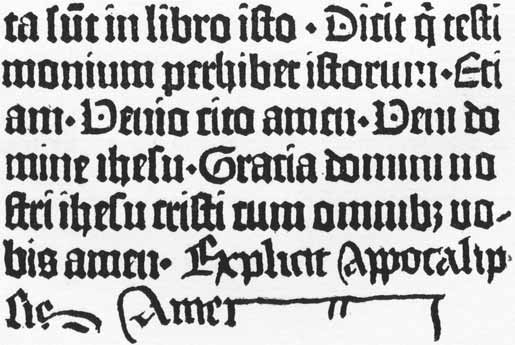 ta sūt in libro isto · Dicit q̄ testi
monium perhibet istorum · Eti
am · Uenio cito amen · Ueni do
mine ihesu · Gracia domini no
stri ihesu cristi cum omnibꝫ uo-
bis amen · Explicit Appocalip-
sis Amen